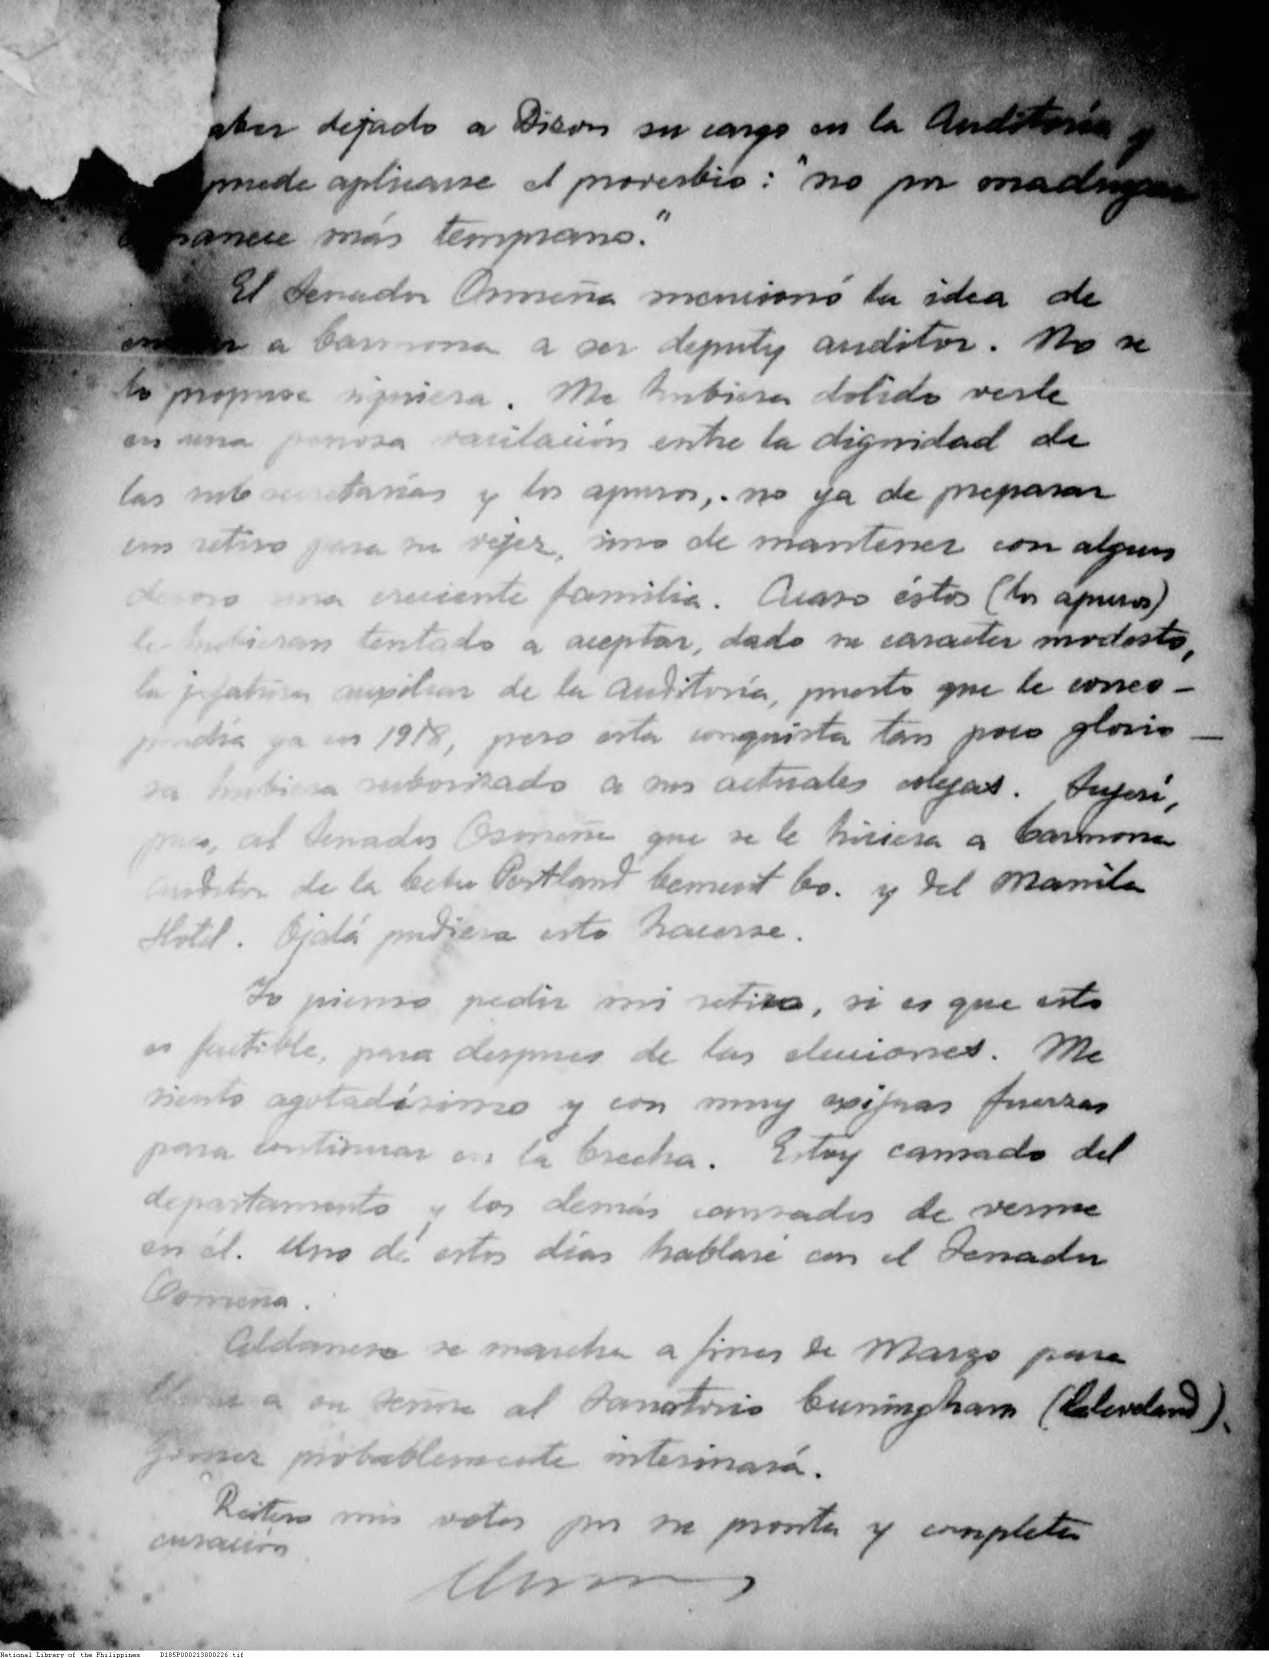 aber dejado a Dizon su cargo en la Auditoría y
puede aplicarse el proverbio: "no por madrugar
amanece más temprano."
El Senador Osmeña mencionó la idea de
a Carmona a ser deputy auditor. No se
lo propuse siquiera. Me hubiera dolido verle
en una penosa vacilación entre la dignidad de
las subsecretarías y los apuros, no ya de preparar
un retiro para su vejez, sino de mantener con algun
decoro una creciente familia. Acaso éstos (los apuros)
le hubieran tentado a aceptar, dado su caracter modesto,
la jefatura auxiliar de la Auditoría, puesto que le corres-
pondía ya en 1918, pero esta conquista tan poco glorio-
sa hubiera ruborizado a sus actuales colegas. Sugerí,
pues, al Senador Osmeña que se le hiciera a Carmona
auditor de la Cebu Portland Cement Co. y del Manila
Hotel. Ojalá pudiera esto hacerse.
Yo pienso pedir mi retiro, si es que esto
es factible, para despues de las elecciones. Me
siento agotadísimo y con muy exiguas fuerzas
para continuar en la brecha. Estoy cansado del
departamento y los demás cansados de verme
en él. Uno de estos días hablaré con el Senador
Osmeña.
Aldanese se marcha a fines de Marzo para
llevar a su señora al Sanatorio Cuningham (Cleveland).
Gomez probablemente interinará.
Reitero mis votos por su pronta y completa
curación
National Library of the Philippines D185P000213800226.tif